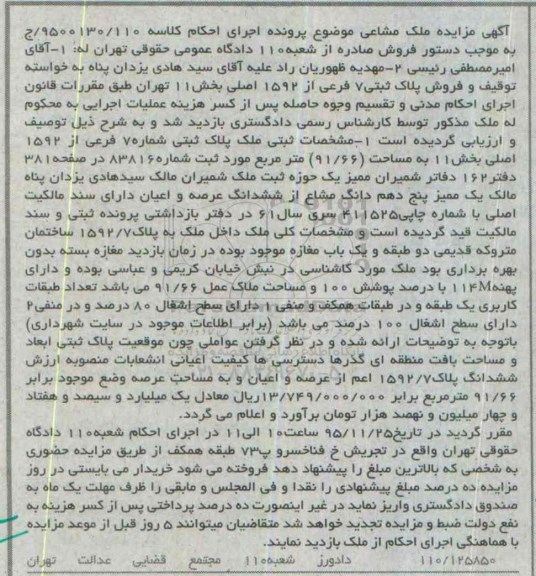 آگهی مزایده ملک مشاعی موضوع پرونده اجرای احکام کلاسه ۹۵۰۰۱۳۰/۱۱۰/ج
به موجب دستور فروش صادره از شعبه۱۱۰ دادگاه عمومی حقوقی تهران له: ۱-آقای
امیرمصطفی رئیسی ۲-مهدیه ظهوریان راد علیه آقای سید هادی یزدان پناه به خواسته
توقیف و فروش پلاک ثبتی۷ فرعی از ۱۵۹۲ اصلی بخش۱۱ تهران طبق مقررات قانون
اجرای احکام مدنی و تقسیم وجوه حاصله پس از کسر هزینه عملیات اجرایی به محکوم
له ملک مذکور توسط کارشناس رسمی دادگستری بازدید شد و به شرح ذیل توصیف
و ارزیابی گردیده است ۱-مشخصات ثبتی ملک پلاک ثبتی شماره۷ فرعی از ۱۵۹۲
اصلی بخش۱۱ به مساحت (۹۱/۶۶) متر مربع مورد ثبت شماره۸۳۸۱۶ در صفحه۳۸۱
دفتر۱۶۲ دفاتر شمیران ممیز یک حوزه ثبت ملک شمیران مالک سیدهادی یزدان پناه
مالک یک ممیز پنج دهم دانگ مشاع از ششدانگ عرصه و اعیان دارای سند مالکیت
اصلی با شماره چاپی۴۱۱۵۲۵ سری سال۶۱ در دفتر بازداشتی پرونده ثبتی و سند
مالکیت قید گردیده است و مشخصات کلی ملک داخل ملک به پلاک۱۵۹۲/۷ ساختمان
متروکه قدیمی دو طبقه و یک باب مغازه موجود بوده در زمان بازدید مغازه بسته بدون
بهره برداری بود ملک مورد کاشناسی در نبش خیابان کریمی و عباسی بوده و دارای
پهنه۱۱۴M با درصد پوشش ۱۰۰ و مساحت ملاک عمل ۹۱/۶۶ می باشد تعداد طبقات
کاربری یک طبقه و در طبقات همکف و منفی۱ دارای سطح اشغال ۸۰ درصد و در منفی۲
دارای سطح اشغال ۱۰۰ درصد می باشد (برابر اطلاعات موجود در سایت شهرداری)
باتوجه به توضیحات ارائه شده و در نظر گرفتن عواملی چون موقعیت پلاک ثبتی ابعاد
و مساحت بافت منطقه ای گذرها دسترسی ها کیفیت اعیانی انشعابات منصوبه ارزش
ششدانگ پلاک۱۵۹۲/۷ اعم از عرصه و اعیان و به مساحت عرصه وضع موجود برابر
۹۱/۶۶ مترمربع برابر ۱۳/۷۴۹/۰۰۰/۰۰۰ریال معادل یک میلیارد و سیصد و هفتاد
و چهار میلیون و نهصد هزار تومان برآورد و اعلام می گردد.
مقرر گردید در تاریخ۹۵/۱۱/۲۵ ساعت۱۰ الی۱۱ در اجرای احکام شعبه۱۱۰ دادگاه
حقوقی تهران واقع در تجریش خ فناخسرو پ۷۳ طبقه همکف از طریق مزایده حضوری
به شخصی که بالاترین مبلغ را پیشنهاد دهد فروخته می شود خریدار می بایستی در روز
مزایده ده درصد مبلغ پیشنهادی را نقدا و فی المجلس و مابقی را ظرف مهلت یک ماه به
صندوق دادگستری واریز نماید در غیر اینصورت ده درصد پرداختی پس از کسر هزینه به
نفع دولت ضبط و مزایده تجدید خواهد شد متقاضیان میتوانند ۵ روز قبل از موعد مزایده
با هماهنگی اجرای احکام از ملک بازدید نمایند.
۱۱۰/۱۲۵۸۵۰ دادورز شعبه۱۱۰ مجتمع قضایی عدالت تهران